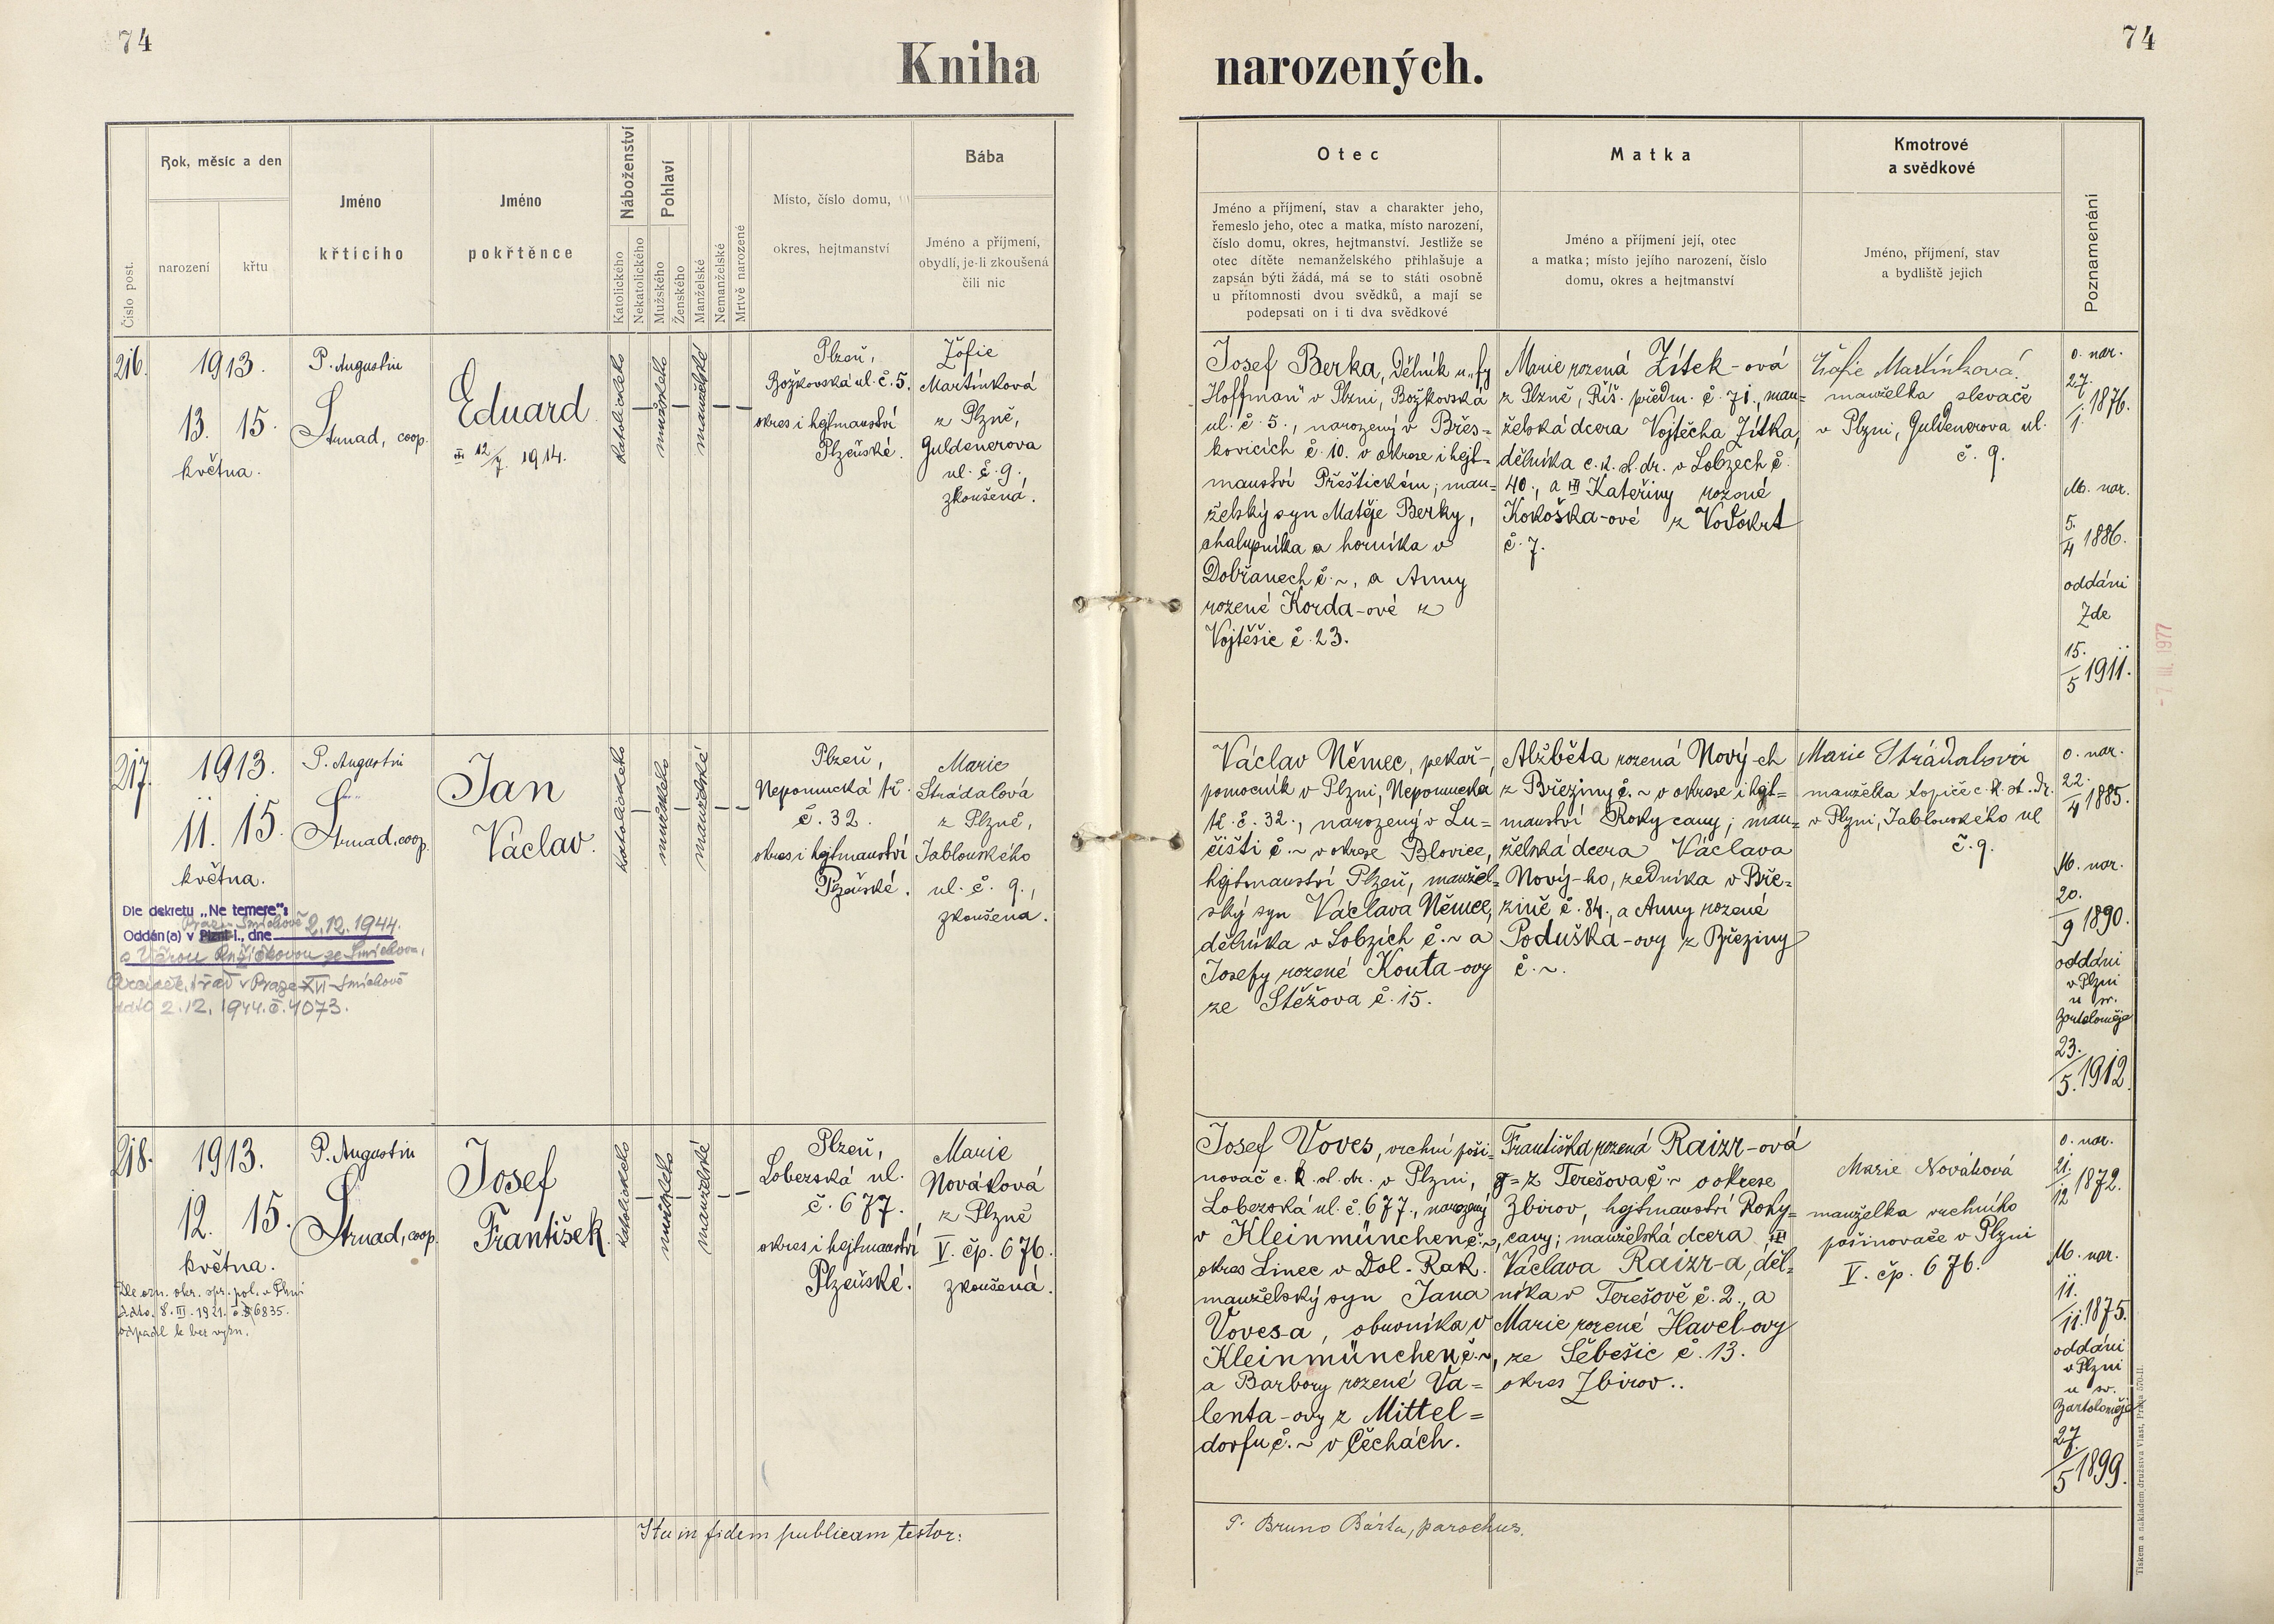 74
Kniha
narozených.
74
Číslo post.
Rok, měsíc a den
narození
křtu
Jméno
křticího
Jméno
pokřtěnce
Náboženství
Katolického
Nekatolického
Pohlaví
Mužského
Ženského
Manželské
Nemanželské
Mrtvě narozené
Místo, číslo domu,
okres, hejtmanství
Bába
Jméno a příjmení,
obydlí, je-li zkoušená
čili nic
Otec
Jméno a příjmení, stav a charakter jeho,
řemeslo jeho, otec a matka, místo narození,
číslo domu, okres, hejtmanství. Jestliže se
otec dítěte nemanželského přihlašuje a
zapsán býti žádá, má se to státi osobně
u přítomnosti dvou svědků, a mají se
podepsati on i ti dva svědkové
Matka
Jméno a příjmení její, otec
a matka; místo jejího narození, číslo
domu, okres a hejtmanství
Kmotrové
a svědkové
Jméno, příjmení, stav
a bydliště jejich
Poznamenání
216.
1913.
13. 15.
května.
P. Augustin
Strnad, coop.
Eduard
III 12/7. 1914.
katolického
mužského
manželské
Plzeň,
Božkovská ul. č. 5.
okres i hejtmanství
Plzeňské.
Žofie
Martínková
z Plzně,
Guldenerova
ul. č. 9.,
zkoušená.
Josef Berka, dělník u "fy
Hoffman" v Plzni, Božkovská
ul. č. 5., narozený v Břes=
kovicích č. 10. v okrese i hejt=
manství Přeštickém; man=
želský syn Matěje Berky,
chalupníka a horníka v
Dobřanech č. ~, a Anny
rozené Korda-ové z
Vojtěšic č. 23.
Marie rozená Zítek-ová
z Plzně, Říš. předm. č. 71., man=
želská dcera Vojtěcha Zítka,
dělníka c. k. st. dr. v Lobzech č.
40., a III Kateřiny rozené
Kokoška-ové z Vodokrt
č. 7.
Žofie Martínková
manželka slevače
v Plzni, Guldenerova ul.
č. 9.
o. nar.
27./1. 1876.
M. nar.
5./4 1886.
oddáni
Zde
15./5 1911.
- 7. III. 1977
217.
1913.
11. 15.
května.
P. Augustin
Strnad, coop.
Jan
Václav.
katolického
mužského
manželské
Plzeň,
Nepomucká tř.
č. 32.
okres i hejtmanství
Plzeňské.
Marie
Strádalová
z Plzně,
Jablonského
ul. č. 9.,
zkoušena.
Dle dekretu „Ne temere":
Praze-Smíchově 2.12.1944.
Oddán(a) v Plzni I., dne
s Věrou Růžičkovou ze Smíchova,
v Praze XVI-Smíchově
2.12.1944. č. 4073.
Václav Němec, pekař-
pomocník v Plzni, Nepomucká
tř. č. 32., narozený v Lu=
čišti č. ~ v okrese Blovice,
hejtmanství Plzeň, manžel=
ský syn Václava Němce,
dělníka v Lobzích č. ~ a
Josefy rozené Kouta-ovy
ze Stěžova č. 15.
Alžběta rozená Nový-ch
z Březiny č. ~ v okrese i hejt=
manství Rokycany; man=
želská dcera Václava
Nový-ho, zedníka v Bře=
zině č. 84., a Anny rozené
Poduška-ovy z Březiny
č. ~.
Marie Strádalová
manželka topiče c. k. st. dr.
v Plzni, Jablonského ul
č. 9.
o. nar.
22./4 1885.
M. nar.
20./9 1890.
oddáni
v Plzni
u sv.
Bartoloměje
23./5. 1912.
218.
1913.
12. 15.
května.
P. Augustin
Strnad, coop.
Josef
František.
katolického
mužského
manželské
Plzeň,
Lobezská ul.
č. 677.
okres i hejtmanství
Plzeňské.
Marie
Nováková
z Plzně
V. čp. 676.
zkoušená.
Dle ozn. okr. spr. pol. v Plzni
ddto. 8. III. 1921. č. 36835.
odpadl k bez vyzn.
Josef Voves, vrchní poši-
novač c. k. st. dr. v Plzni,
Lobezská ul. č. 677., narozený
v Kleinmünchen č. ~,
okres Linec v Dol. Rak.
manželský syn Jana
Voves-a, obuvníka v
Kleinmünchen č. ~,
a Barbory rozené Va=
lenta-ovy z Mittel=
dorfu č. ~ v Čechách.
Františka rozená Raizr-ová
z Terešova č. ~ v okrese
Zbirov, hejtmanství Roky=
cany; manželská dcera III
Václava Raizr-a, děl=
níka v Terešově č. 2., a
Marie rozené Havel-ovy
ze Sebešic č. 13.
okres Zbirov..
Marie Nováková
manželka vrchního
pošinovače v Plzni
V. čp. 676.
o. nar.
21./12 1872.
M. nar.
11./11. 1875.
oddáni
v Plzni
u sv.
Bartoloměje
27./5 1899.
Ita in fidem publicam testor:
P. Bruno Bárta, parochus.
Tiskem a nákladem družstva Vlast, Praha 570-II.